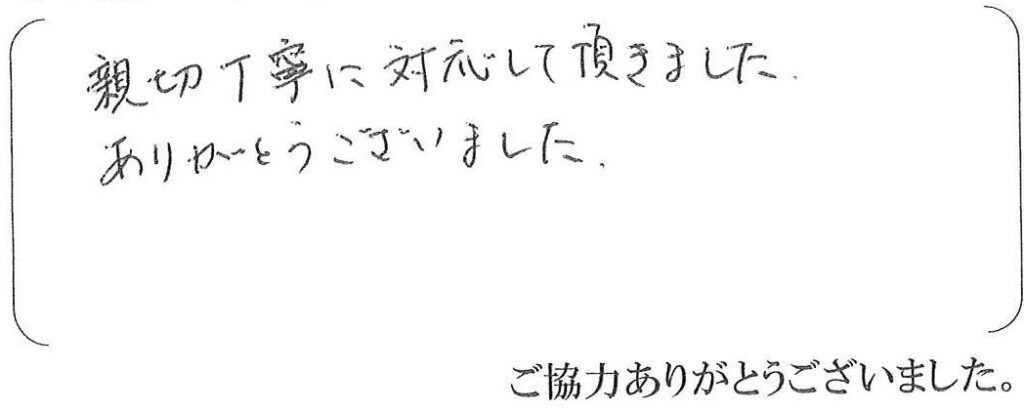 親切丁寧に対応して頂きました.
ありがとうございました.
ご協力ありがとうございました。